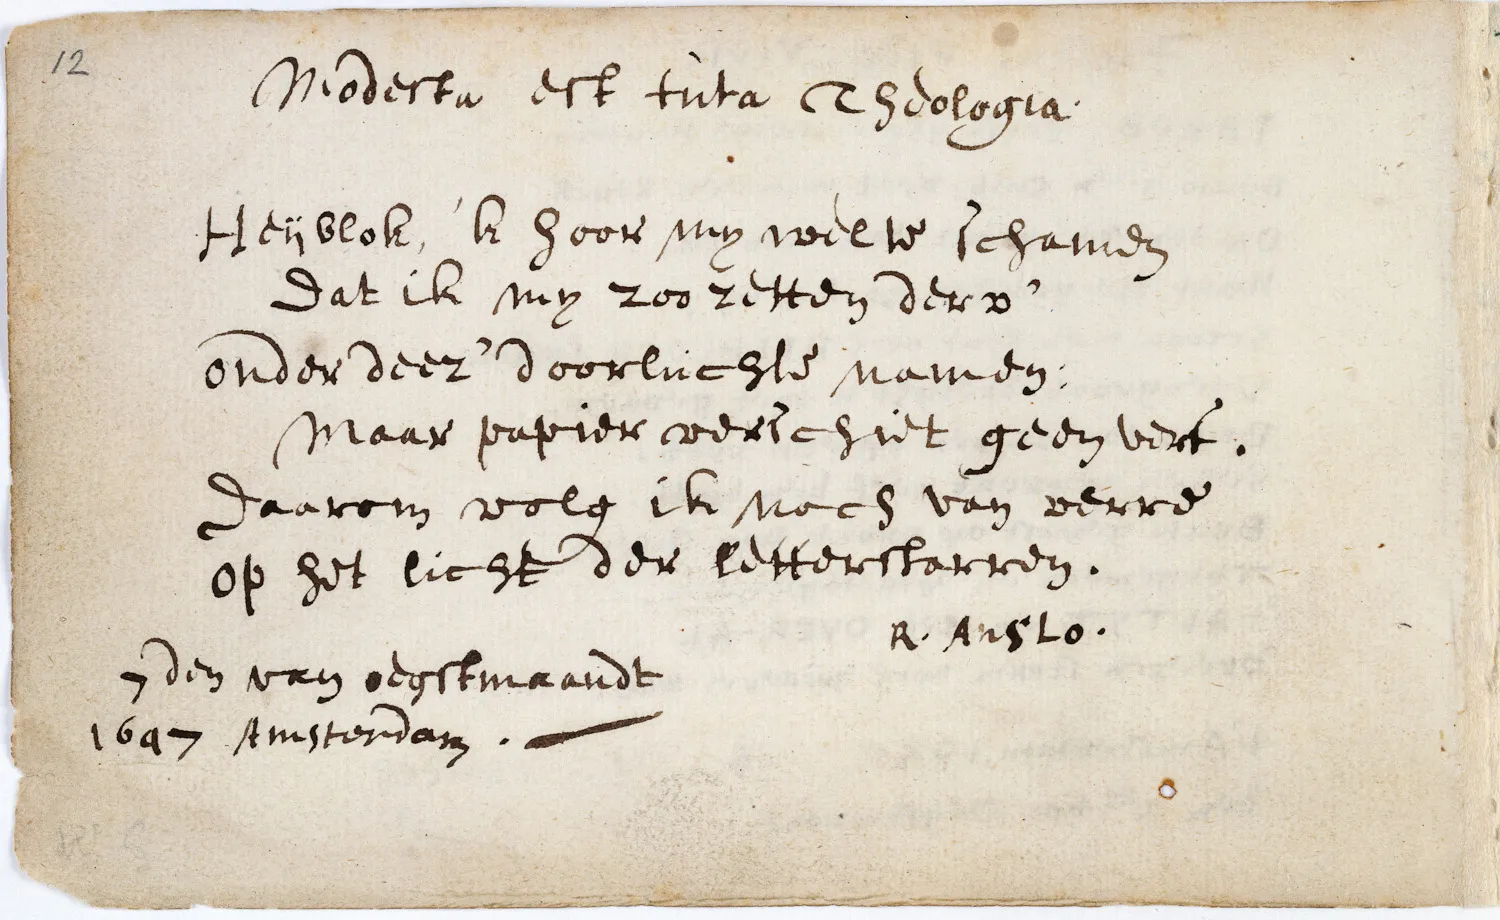 12
Modesta est tuta Theologia.
Heÿblok, 'k hoor my wel te schamen
Dat ik my zoo zetten derv'
onder deez' doorluchte namen:
Maar papier verschiet geen verf.
Daarom volg ik noch van verre
op het licht der letterstarren.
R. Anslo.
7den van oegstmaandt
1647 Amsterdam.